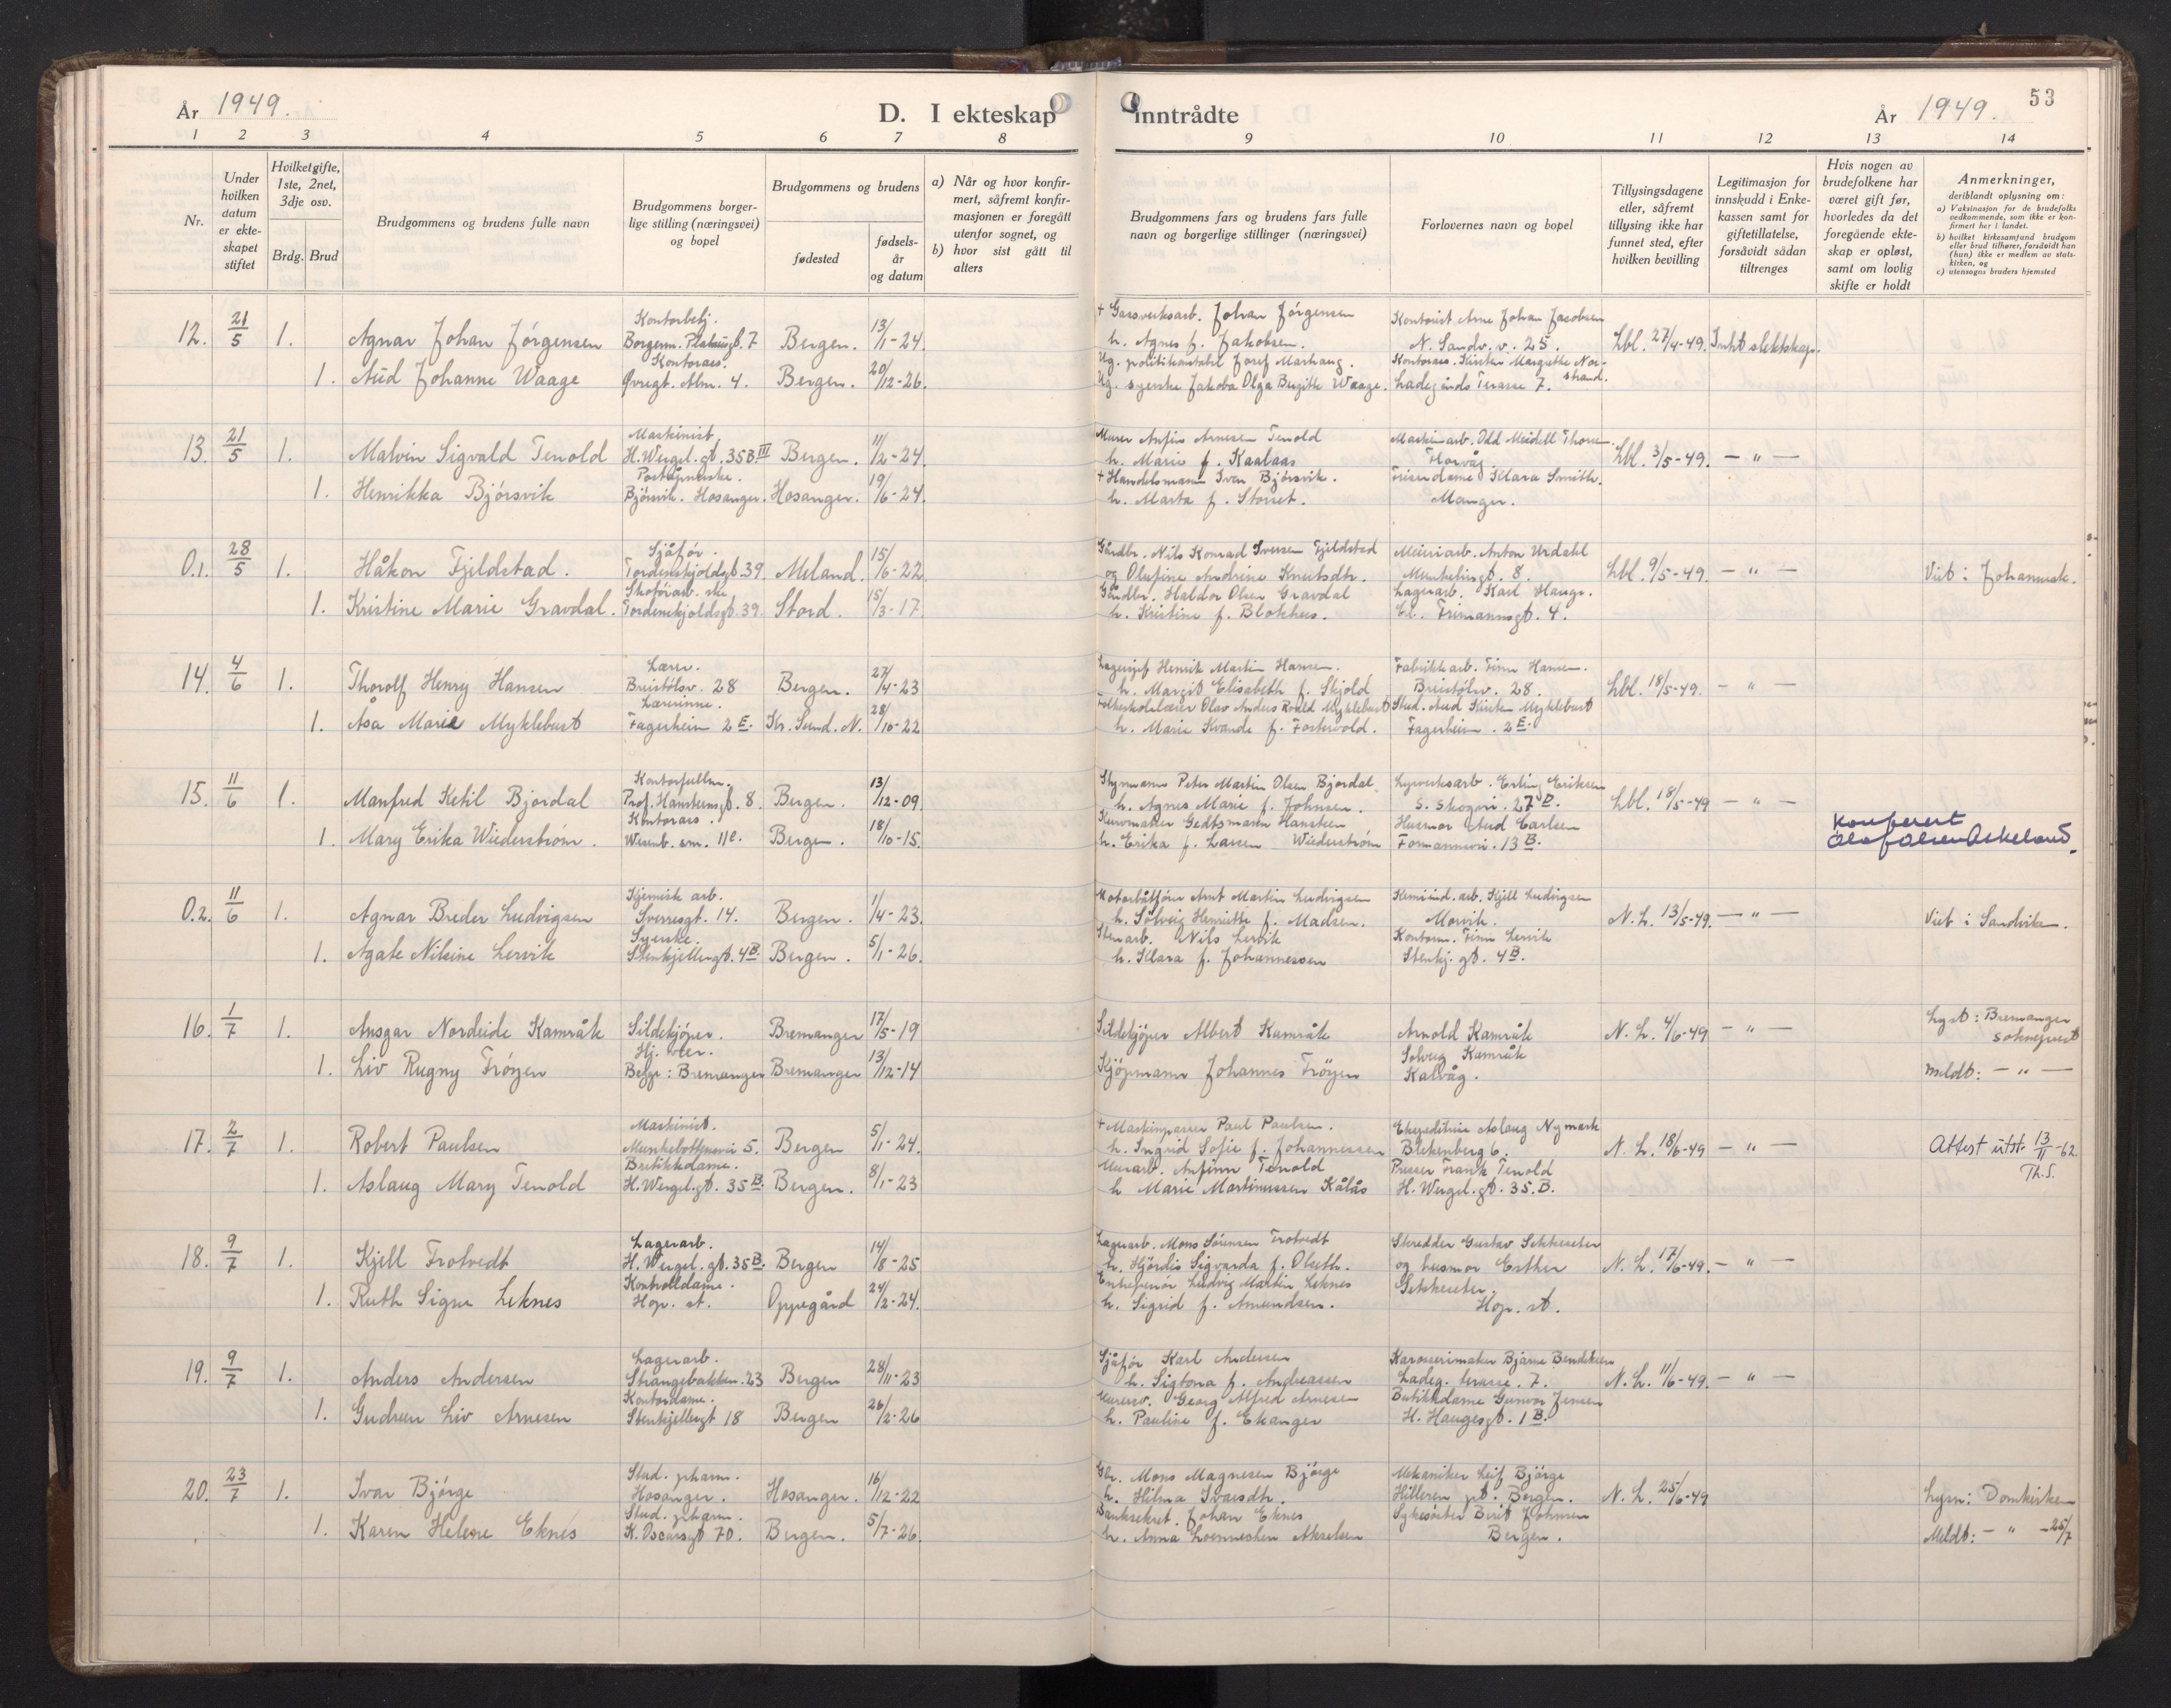 År 1949.
D. I ekteskap inntrådte
År 1949. 53
1 2 3 4 5 6 7 8 9 10 11 12 13 14
Nr.
Under hvilken datum er ekteskapet stiftet
Hvilket gifte, 1ste, 2net, 3dje osv.
Brdg. Brud
Brudgommens og brudens fulle navn
Brudgommens borgerlige stilling (næringsvei) og bopel
Brudgommens og brudens
fødested
fødselsår og datum
a) Når og hvor konfirmert, såfremt konfirmasjonen er foregått utenfor sognet, og
b) hvor sist gått til alters
Brudgommens fars og brudens fars fulle navn og borgerlige stillinger (næringsvei)
Forlovernes navn og bopel
Tillysingsdagene eller, såfremt tillysing ikke har funnet sted, efter hvilken bevilling
Legitimasjon for innskudd i Enkekassen samt for giftetillatelse, forsåvidt sådan tiltrenges
Hvis nogen av brudefolkene har været gift før, hvorledes da det foregående ekteskap er opløst, samt om lovlig skifte er holdt
Anmerkninger,
deriblandt oplysning om:
a) Vaksinasjon for de brudefolks vedkommende, som ikke er konfirmert her i landet.
b) hvilket kirkesamfund brudgom eller brud tilhører, forsåvidt han (hun) ikke er medlem av statskirken, og
c) utensogns bruders hjemsted
12. 21/5 1. Agnar Johan Jørgensen
Kontorbetj.
Bergen. 13/1-24.
+ Gassverksarb. Johan Jørgensen
h. Agnes f. Jakobsen.
Kontorist Arne Johan Jacobsen
N. Sandv. v. 25.
Lbl. 27/4-49. Intet slektskap.
1. Aud Johanne Waage
Kontorass.
Øvregt. Alm. 4. Bergen. 20/12-26.
Ug. syerske Jakoba Olga Bergitte Waage.
Kontorass. Kirsten Margrethe Nordstrand.
Ladegårds Terasse 7.
13. 21/5 1. Malvin Sigvald Tenold
Maskinist
H. Wergel. gt. 35B III Bergen. 11/2-24.
Murer Anfin Arnesen Tenold
h. Marie f. Kaalaas
Maskinarb. Odd Meidell Thorsen.
Florvåg
Lbl. 3/5-49. - " -
1. Henrikka Bjørsvik
Poståpnerske.
Bjørsvik. Hosanger. Hosanger. 19/6-24.
+ Handelsmann Iver Bjørsvik.
h. Marta f. Storset.
Frisørdame Klara Smith.
Manger.
0.1. 28/5 1. Håkon Fjeldstad.
Sjåfør.
Tordenskjoldsgt. 39. Meland. 15/6-22.
Gårdbr. Nils Konrad Iversen Fjeldstad
og Olufine Andrine Knutsdtr.
Meieriarb. Anton Urdahl
Lbl. 9/5-49. - " -
Viet i Johannesk.
1. Kristine Marie Gravdal.
Skofarb. ske
Tordenskjoldsgt. 39. Stord. 15/3-17.
Gårdbr. Haldor Olsen Gravdal
h. Kristine f. Blokhus.
Lagerarb. Karl Hauge.
Cl. Frimannsgt. 4.
14. 4/6 1. Thorolf Henry Hansen
Lærer.
Breistølsv. 28 Bergen. 27/4-23
Lagersjef Henrik Martin Hansen.
h. Margit Elisabeth f. Skjold
Fabrikkarb. Finn Hansen.
Breistølsv. 28.
Lbl. 18/5-49. - " -
1. Åsa Marie Myklebust
Lærerinne.
Fagerheim 2E. Kr. Sund. N. 28/10-22
Folkeskolelærer Olav Anders Roald Myklebust
h. Marie Kvande f. Fostervold.
Stud. Aud Kirsten Myklebust
Fagerheim. 2E.
15. 11/6 1. Manfred Ketil Bjordal
Kontorfullm.
Prof. Hansteensgt. 8. Bergen. 13/12-09.
Styrmann Peter Martin Olsen Bjordal
h. Agnes Marie f. Johnsen.
Lysverksarb. Erling Eriksen
S. Skogvei. 27D.
Lbl. 18/5-49 - " -
1. Mary Erika Wiederstrøm.
Kontorass.
Wesenb. sm. 11e. Bergen. 18/10-15.
Kurvmaker Gedtsmann Hansteen Wiederstrøm
h. Erika f. Larsen
Husmor Aud Carlsen
Formannsvei. 13B.
Konferert
Olaf Olsen Askeland.
0.2. 11/6 1. Agnar Breder Ludvigsen
Kjemisk arb.
Sverresgt. 14. Bergen. 1/4-23.
Motorbåtfører Arnt Martin Ludvigsen
h. Solveig Henriette f. Madsen.
Kemi ind. arb. Kjell Ludvigsen
Morvik.
N.L. 13/5-49. - " -
Viet i Sandviken.
1. Agate Nilsine Lervik
Syerske.
Stenkjellergt. 4B. Bergen. 5/1-26.
Stenarb. Nils Lervik
h. Klara f. Johannessen
Kontorm. Finn Lervik
Stenkj. gt. 4B.
16. 1/7 1. Ansgar Nordeide Kamråk
Sildekjøper. Bremanger 17/5-19
Sildekjøper Albert Kamråk
Arnold Kamråk
N.L. 4/6-49 - " -
Lyst: Bremanger
sokneprest
1. Liv Rugny Frøyen
Begge: Bremanger Bremanger 13/12-14
Kjøpmann Johannes Frøyen
Solveig Kamråk
Kalvåg.
Meldt: - " -
17. 2/7 1. Robert Paulsen
Maskinist.
Munkebottenvei 5. Bergen 5/1-24.
+ Maskinpasser Paul Paulsen.
h. Ingrid Sofie f. Johannessen
Ekspeditrise Aslaug Nymark
Blekenberg 6.
N.L. 18/6-49 - " -
Attest utst. 13/11-62.
Th.S.
1. Aslaug Mary Tenold
Butikkdame.
H. Wergel. gt. 35B. Bergen. 8/1-23
Murarb. Anfinn Tenold
h Marie Martinussen Kålås
Presser Frank Tenold
H. Wergel. gt. 35.B.
18. 9/7 1. Kjell Frotvedt
Lagerarb.
H. Wergel. gt. 35B. Bergen 14/8-25
Lagerarb. Mons Sørensen Frotvedt
h. Hjørdis Sigvarda f. Olseth.
Skredder Gustav Sekkeseter
og husmor Esther
N.L. 17/6-49. - " -
1. Ruth Signe Leknes
Kontrolldame.
Hop. st. Oppegård 24/2-24.
Entreprenør Ludvig Martin Leknes
h. Sigrid f. Amundsen.
Sekkeseter.
Hop. st.
19. 9/7 1. Anders Andersen
Lagerarb.
Strangebakken. 23 Bergen 28/11-23
Sjåfør Karl Andersen
h. Sigtona f. Andreassen
Karosserimaker Bjarne Bendiksen
Ladeg. terasse. 7.
N.L. 11/6-49. - " -
1. Gudrun Liv Arnesen
Kontordame.
Stenkjellergt 18 Bergen 26/2-26
Georg Alfred Arnesen
h. Pauline f. Ekanger
Butikkdame Gunvor Jensen
H. Haugesgt. 1B.
20. 23/7 1. Ivar Bjørge
Stud. pharm.
Hosanger. Hosanger. 16/12-22
Gbr. Mons Magnesen Bjørge
h. Hilma Ivarsdtr.
Mekaniker Leif Bjørge
Hilleren pt. Bergen.
N.L. 25/6-49
Lysn: Domkirken
1. Karen Helene Eknes
Stud. pharm.
K. Oscarsgt 70. Bergen. 5/7-26.
Banksekret. Johan Eknes
h. Anna Loennecken Akselsen
Sykesøster Berit Johnsen
Bergen.
Meldt: - " - 25/7